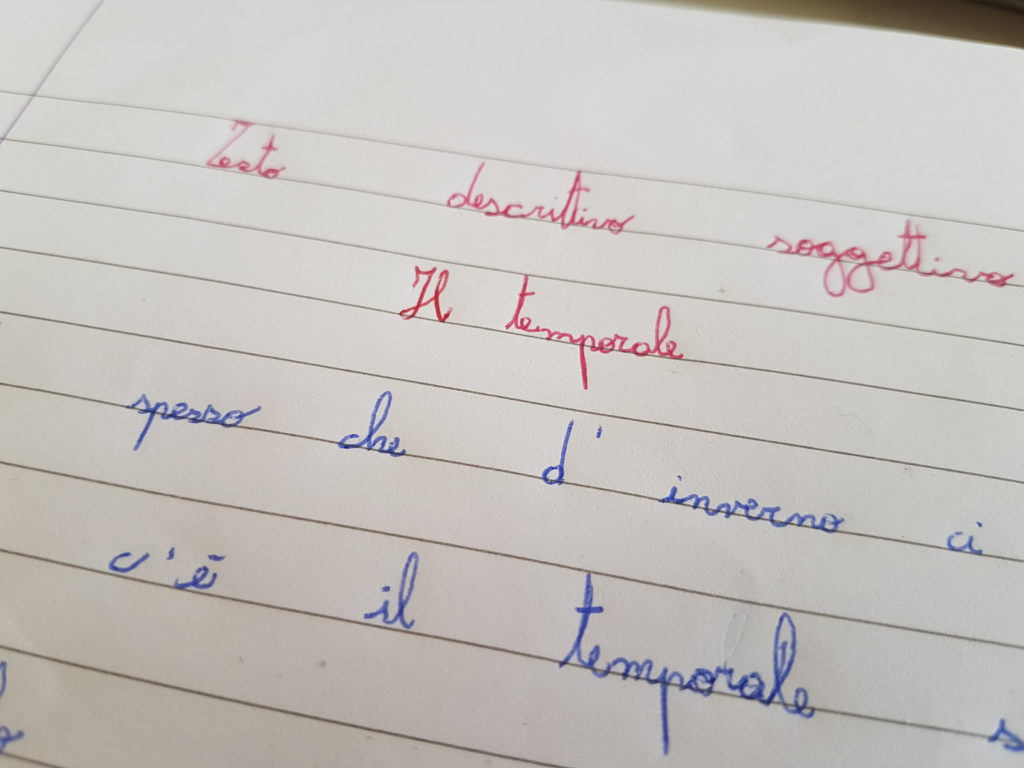 Testo descrittivo soggettivo
Il temporale
spesso che d'inverno ci
c'è il temporale